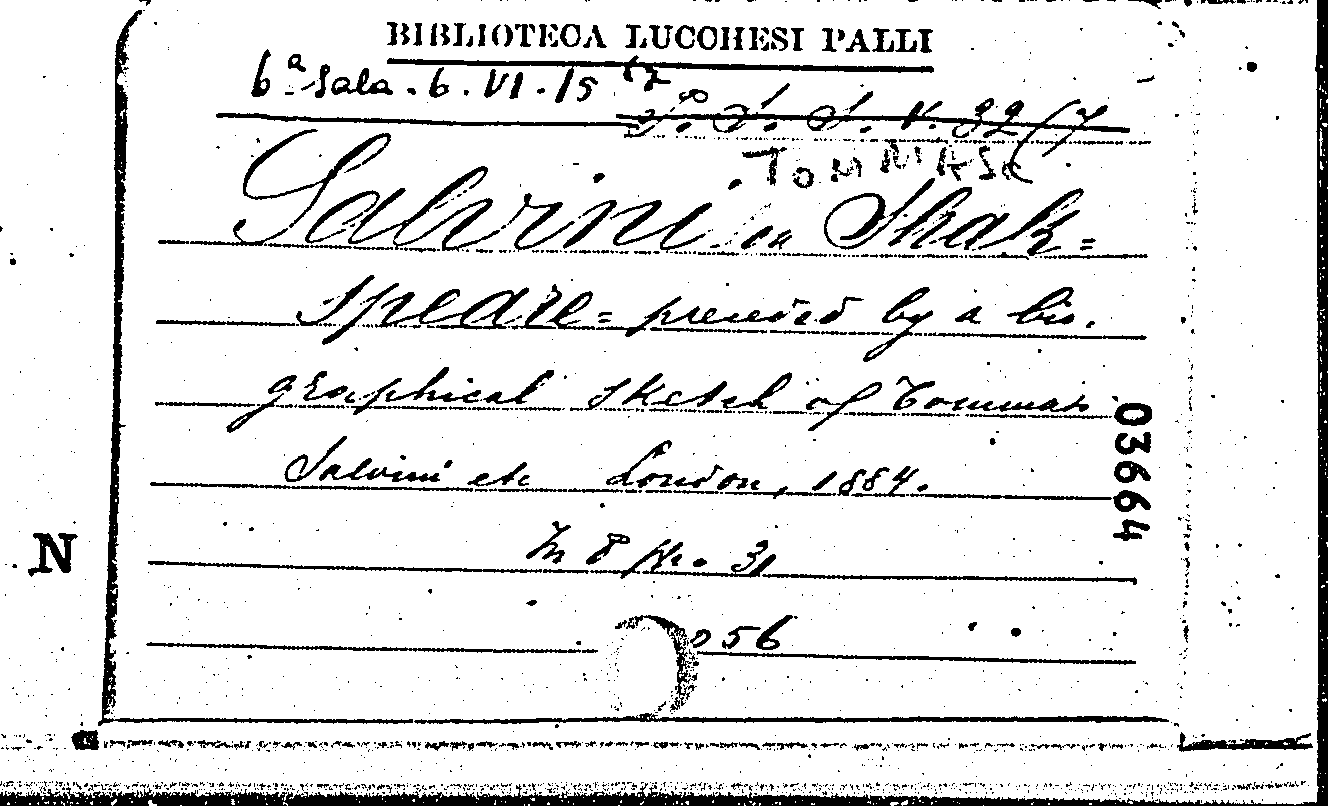 BIBLIOTECA LUCCHESI PALLI
6ª Sala. 6. VI. 15 (7
S. V. 32/7
TOMMASO
Salvini on Shak=
speare= preceded by a bio.
graphical sketch of Tommaso
Salvini etc London, 1884.
In 8 pp. 31
56
03664
N